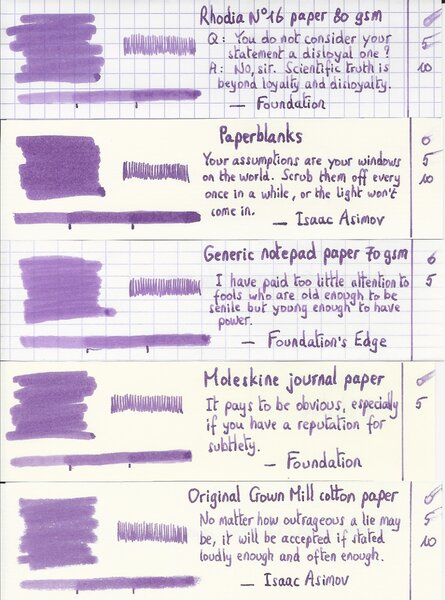 Rhodia N°16 paper 80 gsm
Q: You do not consider your
statement a disloyal one?
A: No, sir. Scientific truth is
beyond loyalty and disloyalty.
— Foundation
0
5
10
Paperblanks
Your assumptions are your windows
on the world. Scrub them off every
once in a while, or the light won't
come in.
— Isaac Asimov
0
5
10
Generic notepad paper 70 gsm
I have paid too little attention to
fools who are old enough to be
senile but young enough to have
power.
— Foundation's Edge
0
5
Moleskine journal paper
It pays to be obvious, especially
if you have a reputation for
subtlety.
— Foundation
0
5
Original Crown Mill cotton paper
No matter how outrageous a lie may
be, it will be accepted if stated
loudly enough and often enough.
— Isaac Asimov
0
5
10